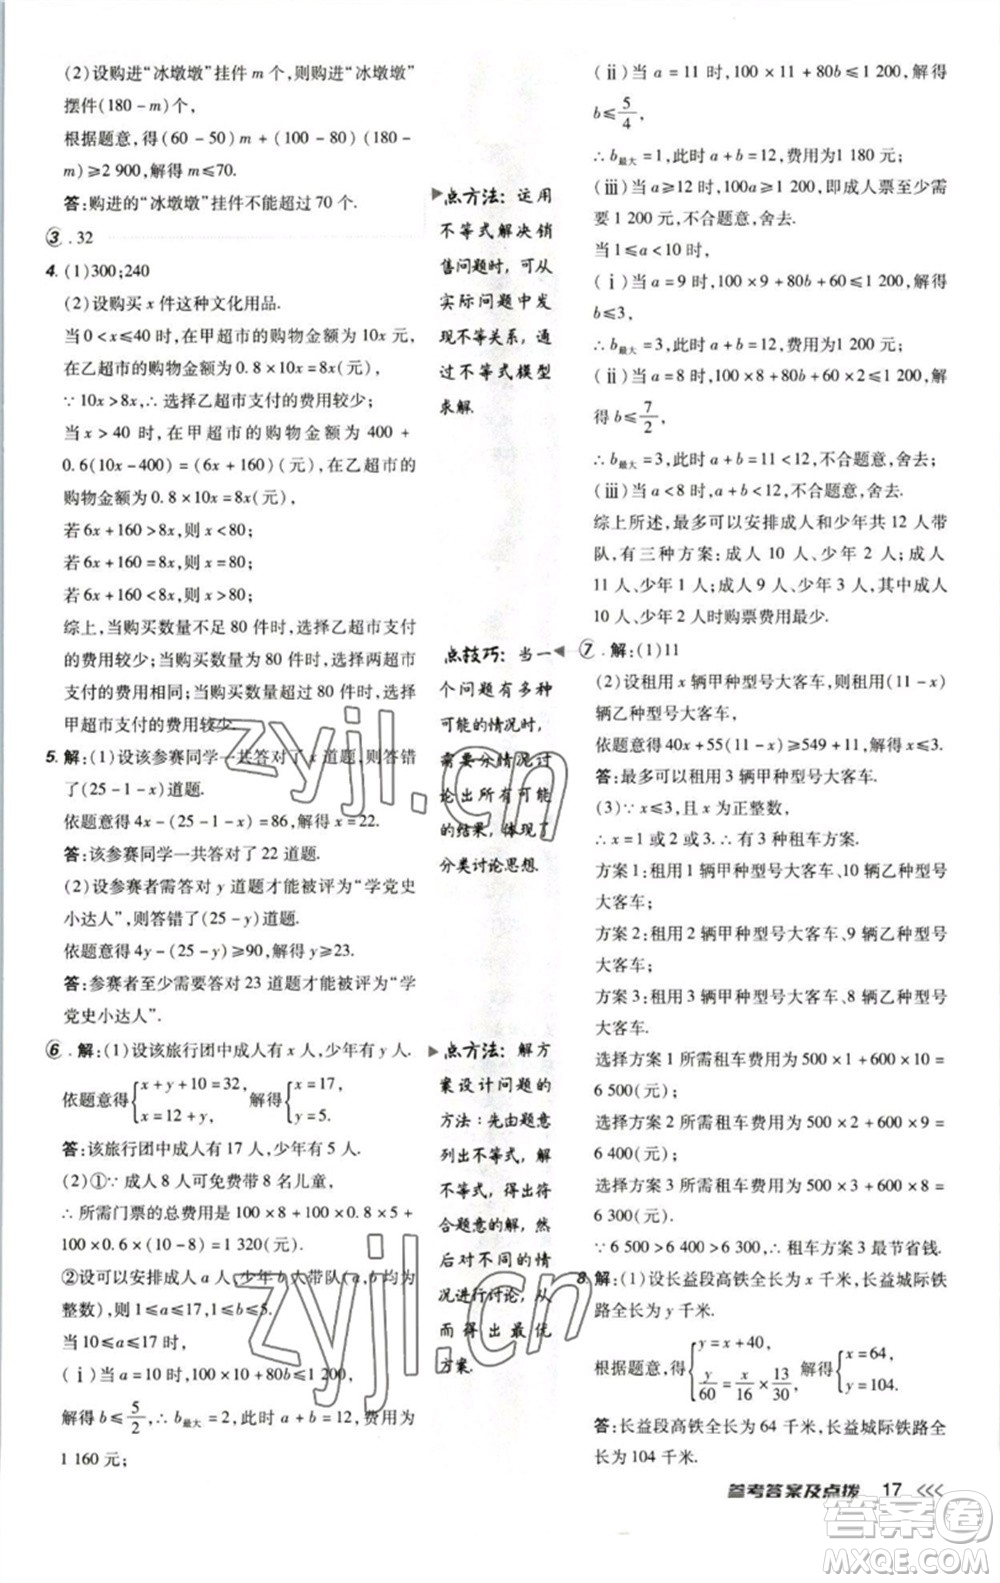 (2)设购进“冰墩墩”挂件 m 个,则购进“冰墩墩”
摆件(180-m)个,
根据题意,得(60-50)m+(100-80)(180-
m)≥2 900,解得 m≤70.
答:购进的“冰墩墩”挂件不能超过 70 个.
③. 32
4. (1)300;240
(2)设购买 x 件这种文化用品.
当 0<x≤40 时,在甲超市的购物金额为 10x 元,
在乙超市的购物金额为 0.8×10x=8x(元),
∵10x>8x,∴选择乙超市支付的费用较少;
当 x>40 时,在甲超市的购物金额为 400+
0.6(10x-400)=(6x+160)(元),在乙超市的
购物金额为 0.8×10x=8x(元),
若 6x+160>8x,则 x<80;
若 6x+160=8x,则 x=80;
若 6x+160<8x,则 x>80;
综上,当购买数量不足 80 件时,选择乙超市支付
的费用较少;当购买数量为 80 件时,选择两超市
支付的费用相同;当购买数量超过 80 件时,选择
甲超市支付的费用较少.
5. 解:(1)设该参赛同学一共答对了 x 道题,则答错
了(25-1-x)道题.
依题意得 4x-(25-1-x)=86,解得 x=22.
答:该参赛同学一共答对了 22 道题.
(2)设参赛者需答对 y 道题才能被评为“学党史
小达人”,则答错了(25-y)道题.
依题意得 4y-(25-y)≥90,解得 y≥23.
答:参赛者至少需要答对 23 道题才能被评为“学
党史小达人”.
⑥. 解:(1)设该旅行团中成人有 x 人,少年有 y 人.
依题意得{x+y+10=32, x=12+y, 解得{x=17, y=5.
答:该旅行团中成人有 17 人,少年有 5 人.
(2)①∵成人 8 人可免费带 8 名儿童,
∴所需门票的总费用是 100×8+100×0.8×
5+100×0.6×(10-8)=1 320(元).
②设可以安排成人 a 人、少年 b 人带队(a,b 均为
整数),则 1≤a≤17,1≤b≤5.
当 10≤a≤17 时,
(ⅰ)当 a=10 时,100×10+80b≤1 200,
解得 b≤5/2,∴b最大=2,此时 a+b=12,费用为
1 160 元;
▶点方法:运用
不等式解决销
售问题时,可从
实际问题中发
现不等关系,通
过不等式模型
求解.
点技巧:当一
个问题有多种
可能的情况时,
需要分情况讨
论出所有可能
的结果,体现了
分类讨论思想.
▶点方法:解方
案设计问题的
方法:先由题意
列出不等式,解
不等式,得出符
合题意的解,然
后对不同的情
况进行讨论,从
而得出最优
方案.
(ⅱ)当 a=11 时,100×11+80b≤1 200,解得
b≤5/4,
∴b最大=1,此时 a+b=12,费用为1 180 元;
(ⅲ)当 a≥12 时,100a≥1 200,即成人票至少需
要 1 200 元,不合题意,舍去.
当 1≤a<10 时,
(ⅰ)当 a=9 时,100×9+80b+60≤1 200,解得
b≤3,
∴b最大=3,此时 a+b=12,费用为1 200 元;
(ⅱ)当 a=8 时,100×8+80b+60×2≤1 200,解
得 b≤7/2,
∴b最大=3,此时 a+b=11<12,不合题意,舍去;
(ⅲ)当 a<8 时,a+b<12,不合题意,舍去.
综上所述,最多可以安排成人和少年共 12 人带
队,有三种方案:成人 10 人、少年 2 人;成人
11 人、少年 1 人;成人 9 人、少年 3 人,其中成人
10 人、少年 2 人时购票费用最少.
⑦. 解:(1)11
(2)设租用 x 辆甲种型号大客车,则租用(11-x)
辆乙种型号大客车,
依题意得 40x+55(11-x)≥549+11,解得 x≤3.
答:最多可以租用 3 辆甲种型号大客车.
(3)∵x≤3,且 x 为正整数,
∴x=1 或 2 或 3.∴有 3 种租车方案.
方案 1:租用 1 辆甲种型号大客车、10 辆乙种型号
大客车;
方案 2:租用 2 辆甲种型号大客车、9 辆乙种型号
大客车;
方案 3:租用 3 辆甲种型号大客车、8 辆乙种型号
大客车.
选择方案 1 所需租车费用为 500×1+600×10=
6 500(元);
选择方案 2 所需租车费用为 500×2+600×9=
6 400(元);
选择方案 3 所需租车费用为 500×3+600×8=
6 300(元).
∵6 500>6 400>6 300,∴租车方案 3 最节省钱.
8. 解:(1)设长益段高铁全长为 x 千米,长益城际铁
路全长为 y 千米.
根据题意,得{y=x+40, y/60=x/16×13/30, 解得{x=64, y=104.
答:长益段高铁全长为 64 千米,长益城际铁路全
长为 104 千米.
参考答案及点拨 17
zyjl.cn
zyjl.cn
答案圈
MXQE.COM